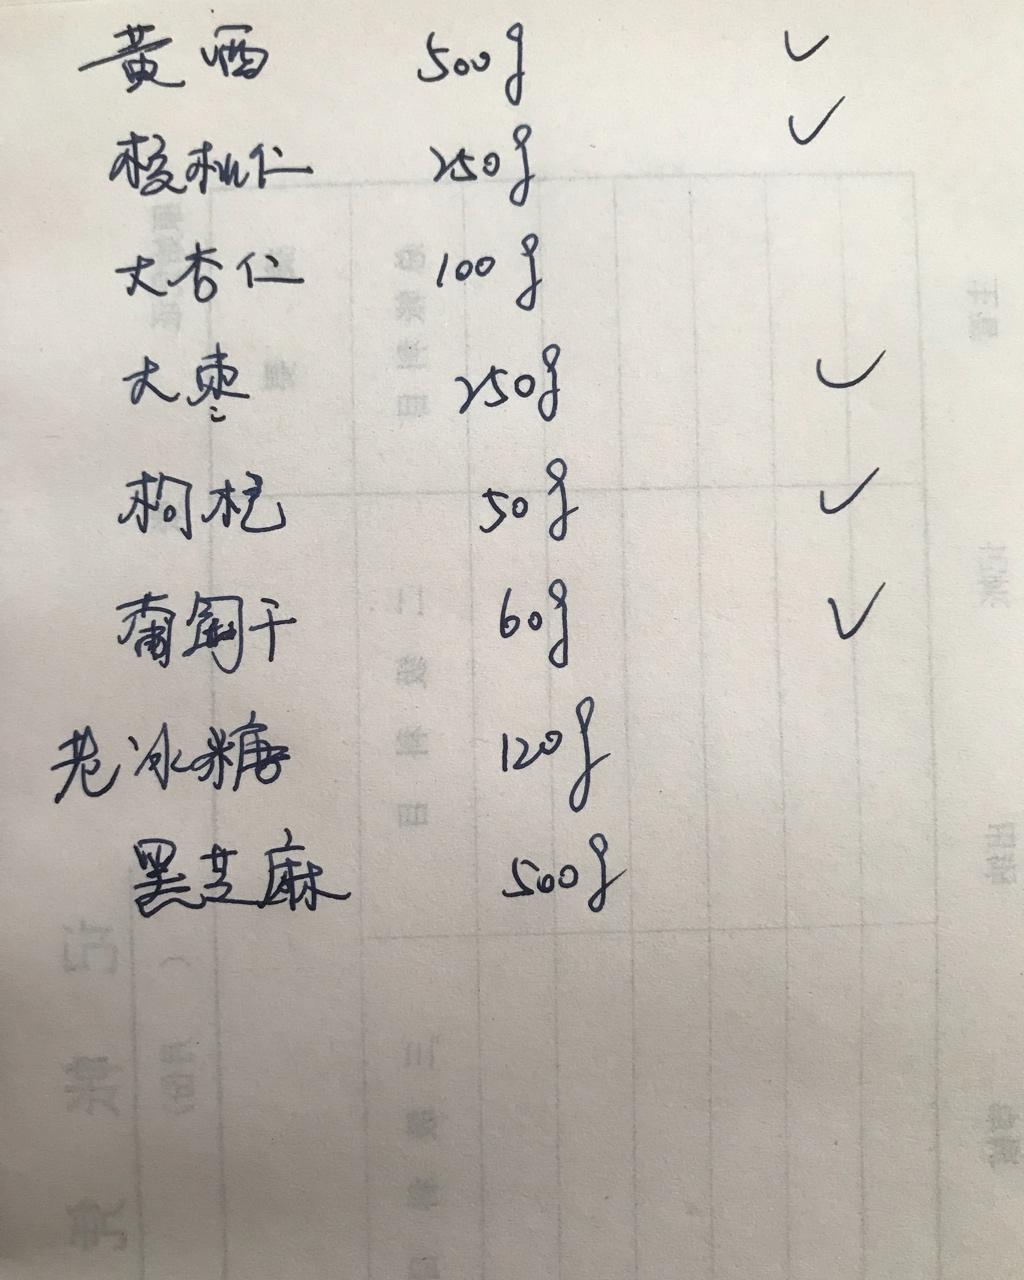 黄酒 500g ✓
核桃仁 250g ✓
大杏仁 100g
大枣 250g ✓
枸杞 50g ✓
葡萄干 60g ✓
老冰糖 120g
黑芝麻 500g